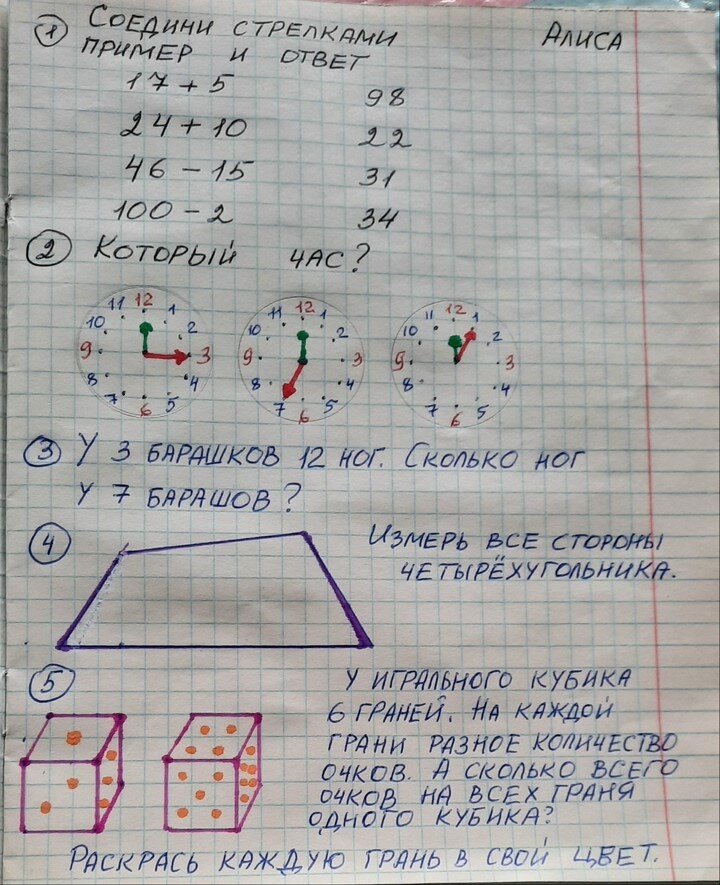 ① Соедини стрелками Алиса
пример и ответ
17 + 5 98
24 + 10 22
46 - 15 31
100 - 2 34
② Который час?
11 12 1 11 12 1 11 12 1
10 2 10 2 10 2
9 3 9 3 9 3
8 4 8 4 8 4
7 6 5 7 6 5 7 6 5
③ У 3 барашков 12 ног. Сколько ног
у 7 барашов?
④ Измерь все стороны
четырёхугольника.
⑤ У игрального кубика
6 граней. На каждой
грани разное количество
очков. А сколько всего
очков на всех граня
одного кубика?
Раскрась каждую грань в свой цвет.